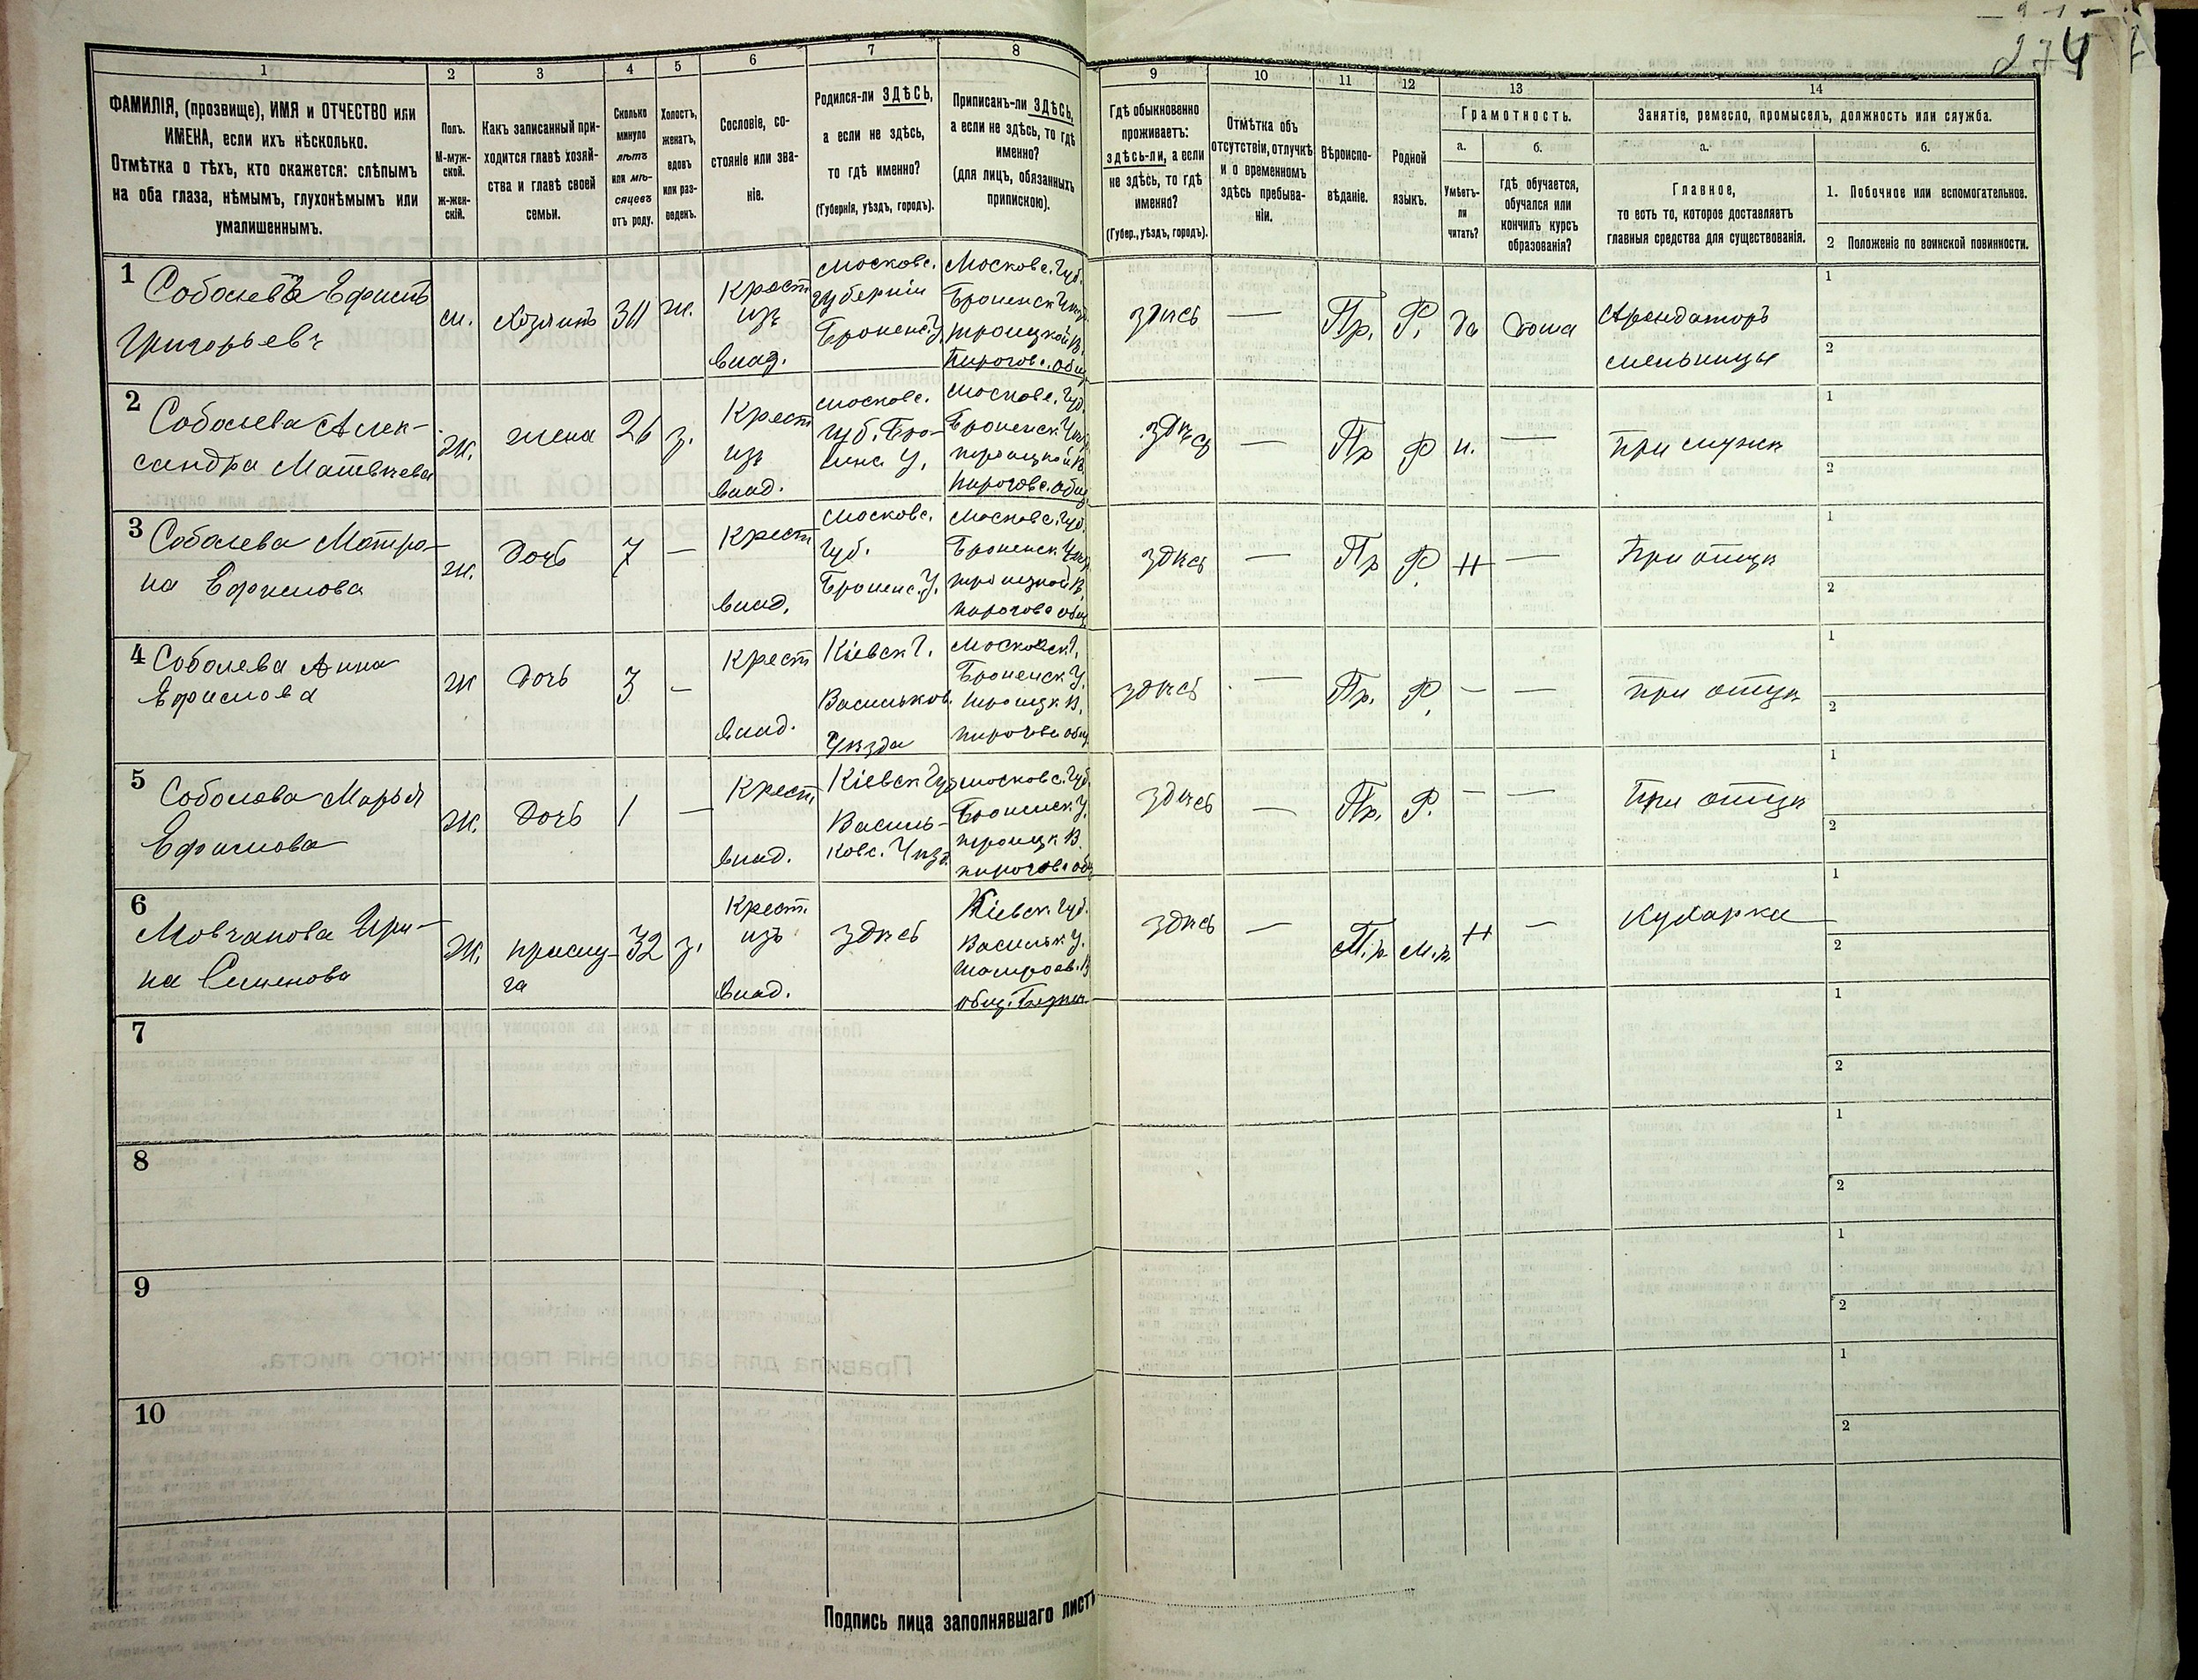 274
1 2 3 4 5 6 7 8 9 10 11 12 13 14
ФАМИЛІЯ, (прозвище), ИМЯ и ОТЧЕСТВО или
ИМЕНА, если ихъ нѣсколько.
Отмѣтка о тѣхъ, кто окажется: слѣпымъ
на оба глаза, нѣмымъ, глухонѣмымъ или
умалишеннымъ.
Полъ.
М-муж-
ской.
ж-жен-
скій.
Какъ записанный при-
ходится главѣ хозяй-
ства и главѣ своей
семьи.
Сколько
минуло
лѣтъ
или мѣ-
сяцевъ
отъ роду.
Холостъ,
женатъ,
вдовъ
или раз-
веденъ.
Сословіе, со-
стояніе или зва-
ніе.
Родился-ли ЗДѢСЬ,
а если не здѣсь,
то гдѣ именно?
(Губернія, уѣздъ, городъ).
Приписанъ-ли ЗДѢСЬ,
а если не здѣсь, то гдѣ
именно?
(для лицъ, обязанныхъ
припискою).
Гдѣ обыкновенно
проживаетъ:
здѣсь-ли, а если
не здѣсь, то гдѣ
именно?
(Губер., уѣздъ, городъ).
Отмѣтка объ
отсутствіи, отлучкѣ
и о временномъ
здѣсь пребыва-
ніи.
Вѣроиспо-
вѣданіе.
Родной
языкъ.
Грамотность.
а.
Умѣетъ-
ли
читать?
б.
гдѣ обучается,
обучался или
кончилъ курсъ
образованія?
Занятіе, ремесло, промыселъ, должность или служба.
а.
Главное,
то есть то, которое доставляетъ
главныя средства для существованія.
б.
1. Побочное или вспомогательное.
2 Положеніе по воинской повинности.
1
Соболевъ Ефимъ
Григорьевъ
м.
Хозяинъ
ж.
Крест
изъ
влад.
Московс.
губерніи
Броненс. У.
Московс. Губ.
Броненск Уѣзд.
троицкой В.
Пирогов. общ
здѣсь
—
Пр.
Р.
да
дома
Арендаторъ
мельницы
1
2
2
Соболева Алек-
сандра Матвѣева
Ж.
жена
26
з.
Крест
изъ
влад.
Московс.
губ. Бро-
нинс У.
Московс. Губ.
Броненск Уѣзд
троицкой В.
Пироговс. общ
здѣсь
—
Пр
Р
н.
—
При мужѣ
1
2
3
Соболева Матро-
на Ефимова
ж.
Дочь
7
—
Крест
влад.
Московс.
Губ.
Броненс. У.
Московс. Губ.
Броненск Уѣзд
троицкой В.
пирогово общ
здѣсь
—
Пр
Р.
Н
—
При отцѣ
1
2
4
Соболева Анна
Ефимова
ж
Дочь
3
—
Крест
влад.
Кіевск Г.
Васильков.
Уѣзда
Московск Г.
Броненск У.
троицк В.
пирогова общ
здѣсь
—
Пр.
Р.
—
—
При отцѣ
1
2
5
Соболева Марья
Ефимова
Ж.
Дочь
1
—
Крест.
влад.
Кіевск Губ
Василь-
ковс. Уѣзд.
Московс. Губ.
Броненск У.
троицк В.
пирогова общ
здѣсь
—
Пр.
Р.
—
—
При отцѣ
1
2
6
Мовчанова Ири-
на Семенова
Ж.
прислу-
га
32
з.
Крест.
изъ
влад.
здѣсь
Кіевск. Губ.
Васильк У.
общ.
здѣсь
—
П.р.
М.р.
Н
—
Кухарка
1
2
7
1
2
8
1
2
9
1
2
10
1
2
Подпись лица заполнявшаго листъ